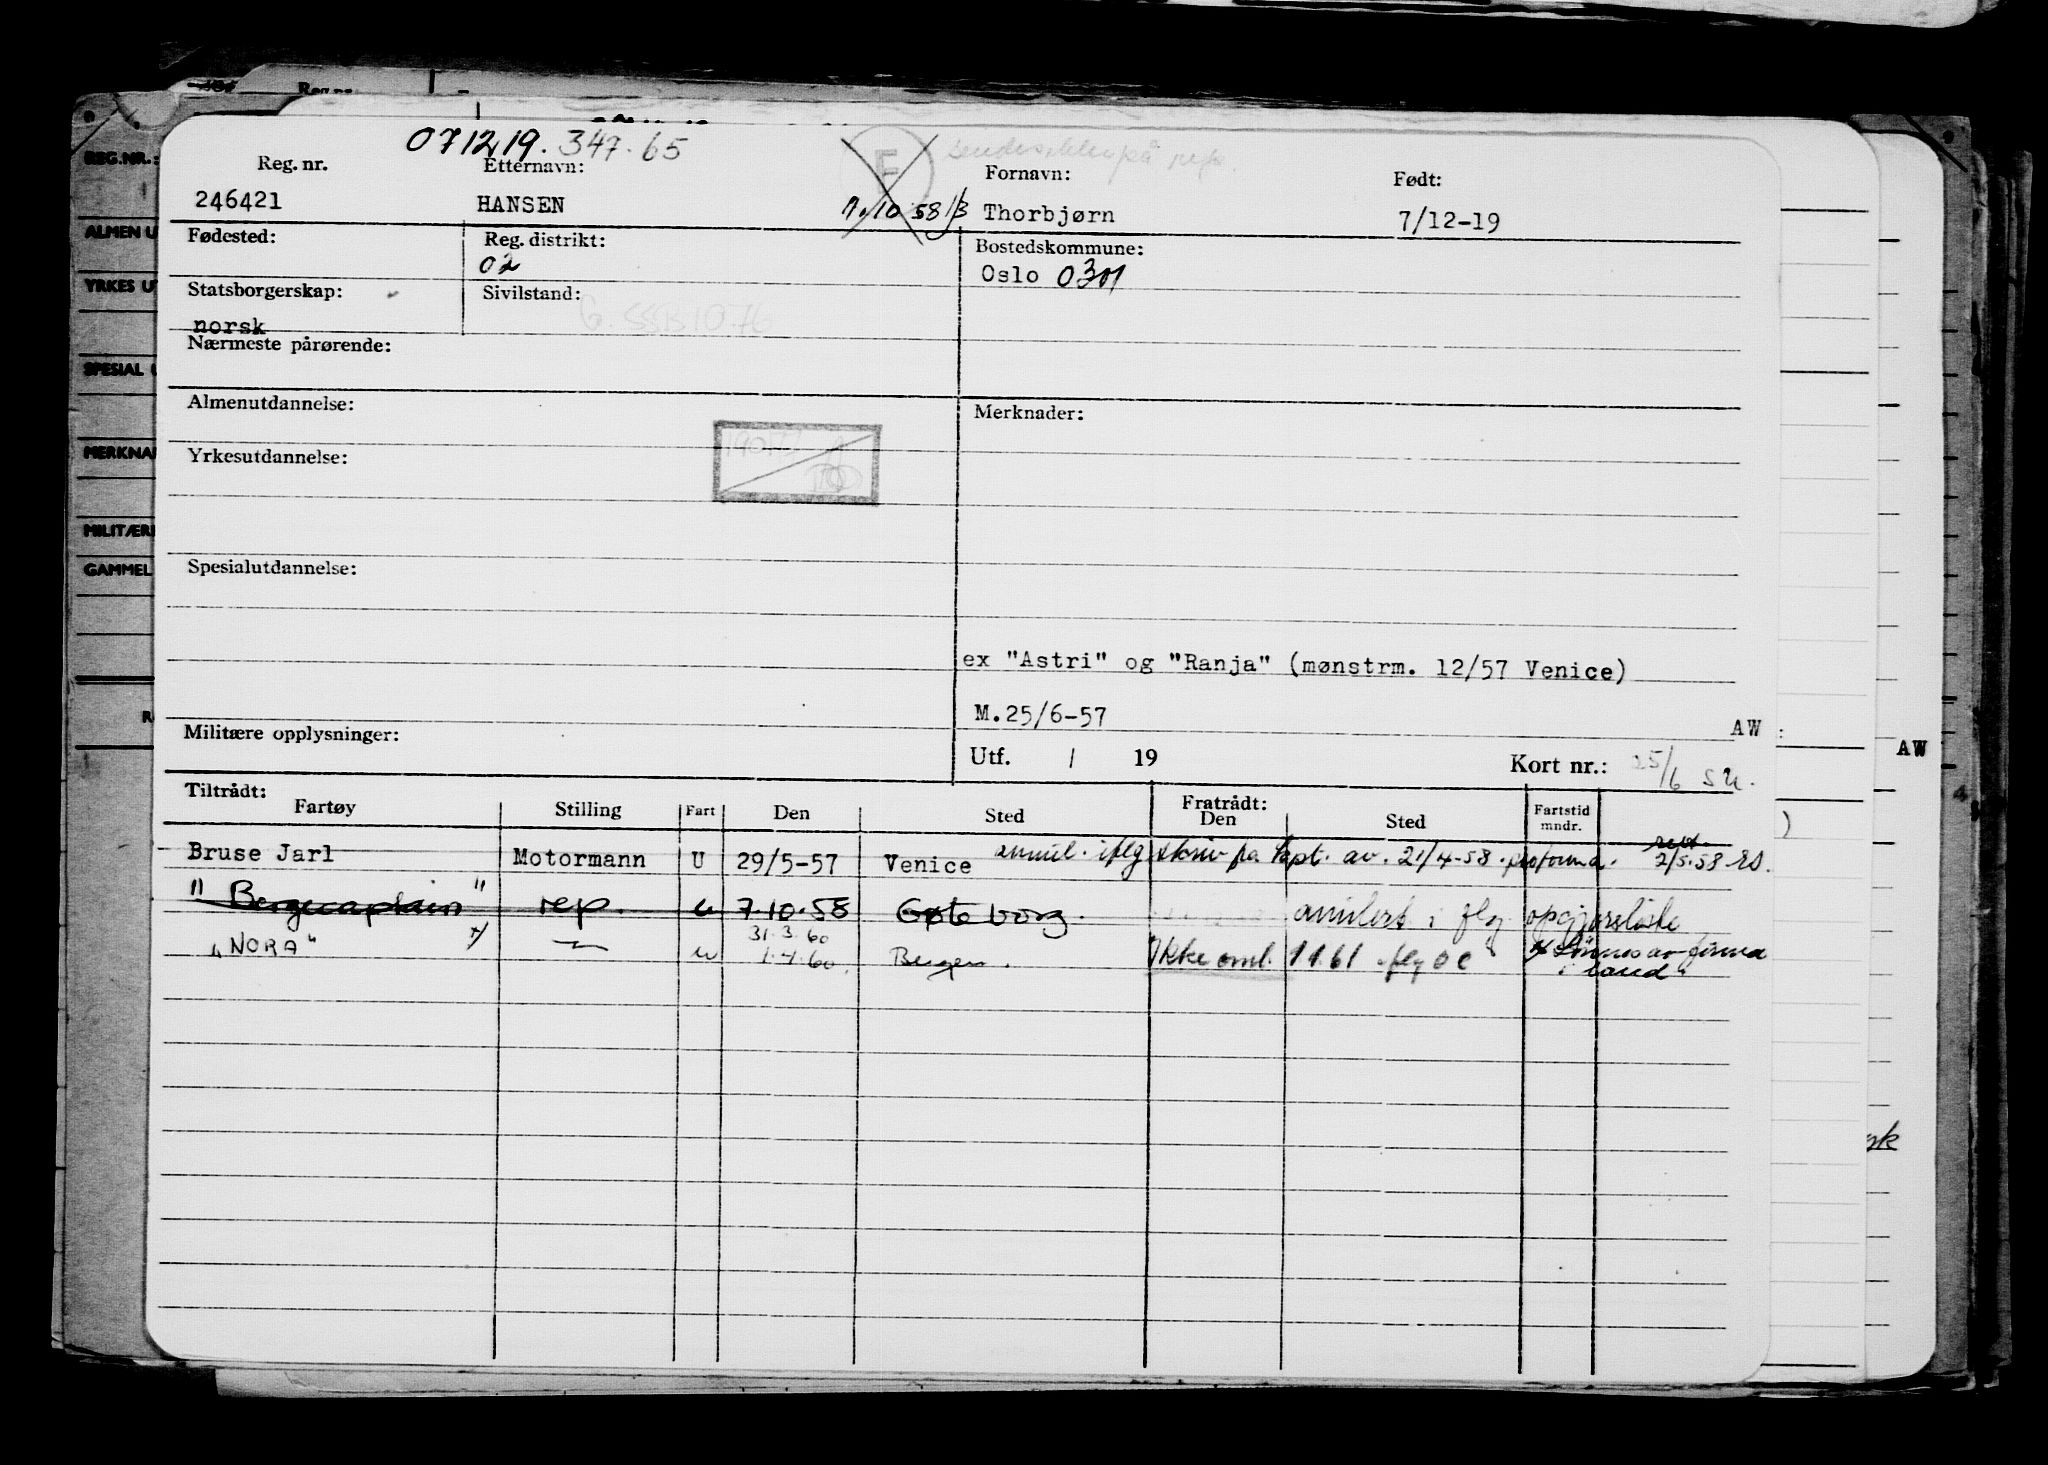 071219. 347.65
Reg. nr. Etternavn: Fornavn: Født:
246421 HANSEN 7.10 58 Thorbjørn 7/12-19
Fødested: Reg. distrikt: Bostedskommune:
02 Oslo 0301
Statsborgerskap: Sivilstand:
norsk
Nærmeste pårørende:
Almenutdannelse: Merknader:
Yrkesutdannelse:
Spesialutdannelse:
ex "Astri" og "Ranja" (mønstrm. 12/57 Venice)
M.25/6-57 AW
Militære opplysninger: Utf. / 19 Kort nr.: 25/6
Tiltrådt: Fratrådt:
Fartøy Stilling Fart Den Sted Den Sted Fartstid mndr.
Bruse Jarl Motormann U 29/5-57 Venice annul. iflg skriv fra kapt. av. 21/4-58. proforma. 2/5.58
"Bergecaptain" rep. u 7.10.58 Gøteborg. annulert i flg. opgjørsliste
31.3.60
"NORA" x/ u 1.4.60 Bergen. Ikke oml. 1 1.61 iflg O C x Lønnes av firma
i land
REG.NR.:
ALMEN U
YRKES U
SPESIAL
MERKNA
MILITÆR
GAMMEL
AW